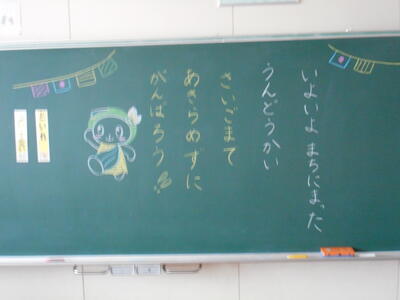 いよいよ まちにまった
うんどうかい
さいごまで
あきらめずに
がんばろう!